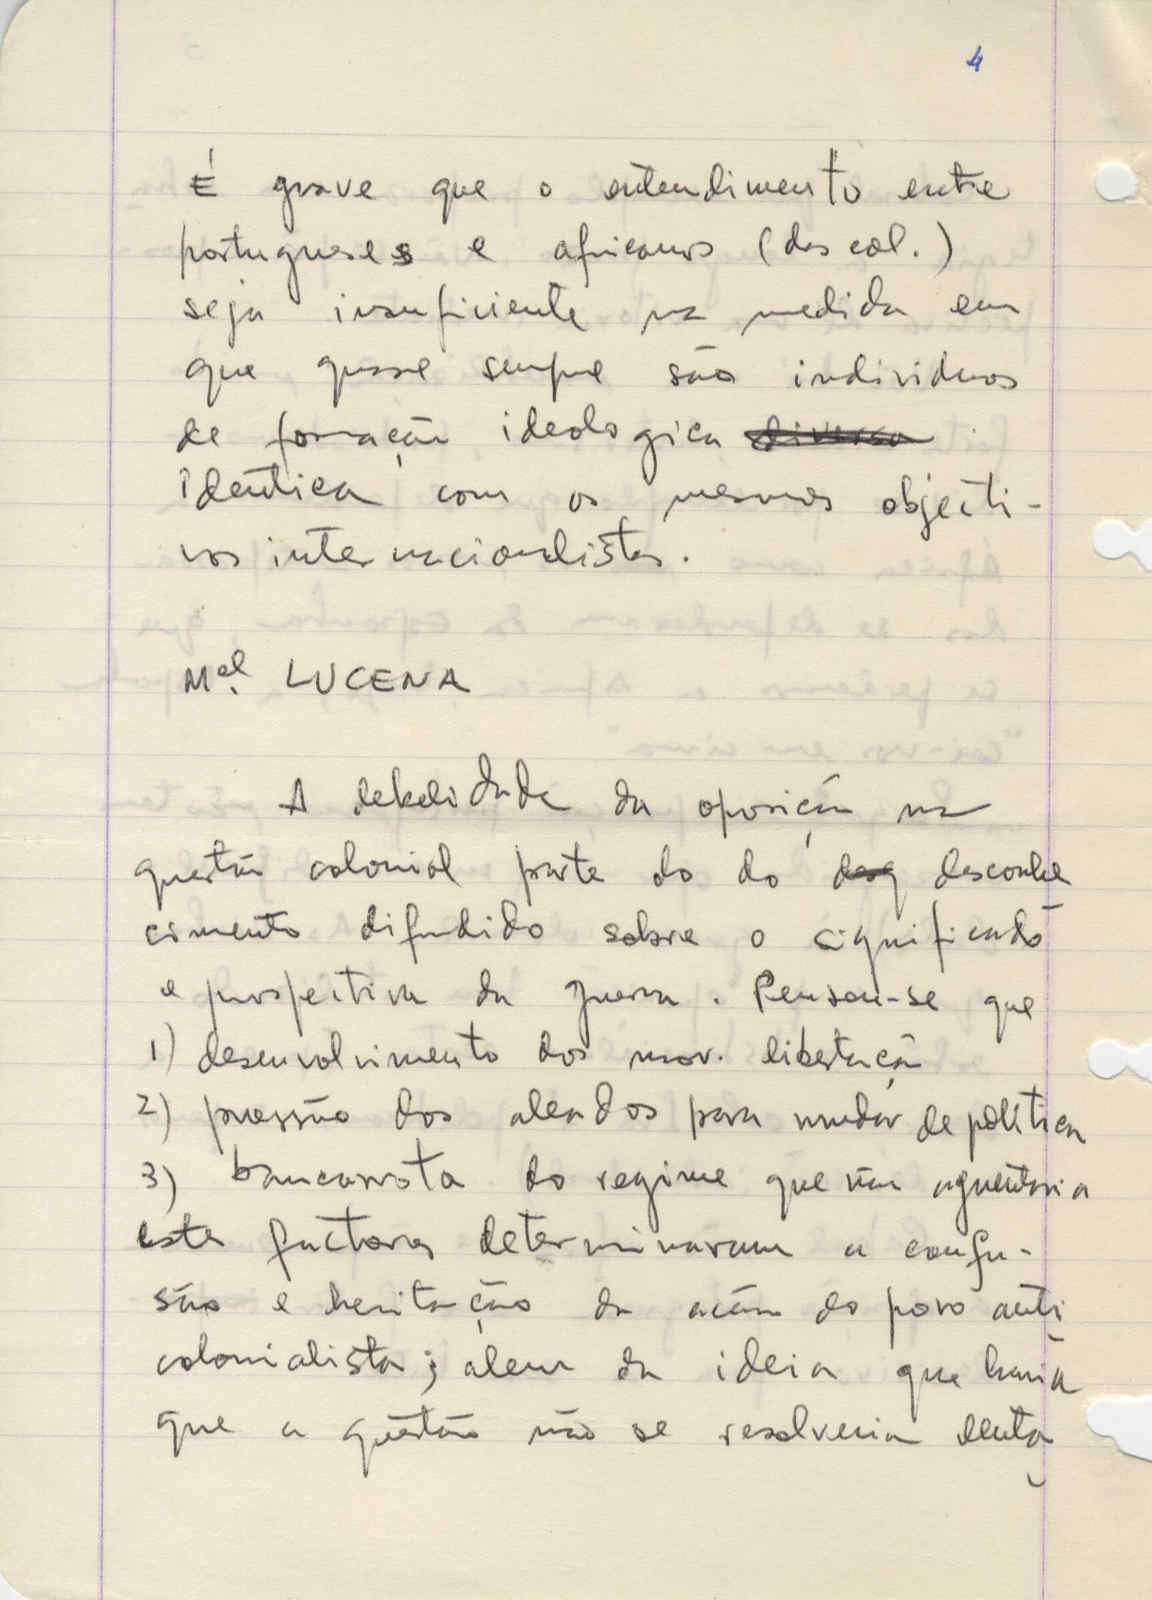 4
É grave que o entendimento entre
portugueses e africanos (das col.)
seja insuficiente na medida em
que quase sempre são individuos
de formação ideologica diversa
identica com os mesmos objecti-
vos internacionalistas.
Mel. LUCENA
A debelidade da oposição na
questão colonial parte do do desq desconhe
cimento difundido sobre o significado
e prospectiva da guerra. Pensou-se que
1) desenvolvimento dos mov. libertação
2) pressão dos aleados para mudar de política
3) bancarrota do regime que não aguentaria
estes factores determinaram a confu-
são e hesitação da acção do povo anti
colonialista; alem da ideia que havia
que a questão não se resolveria